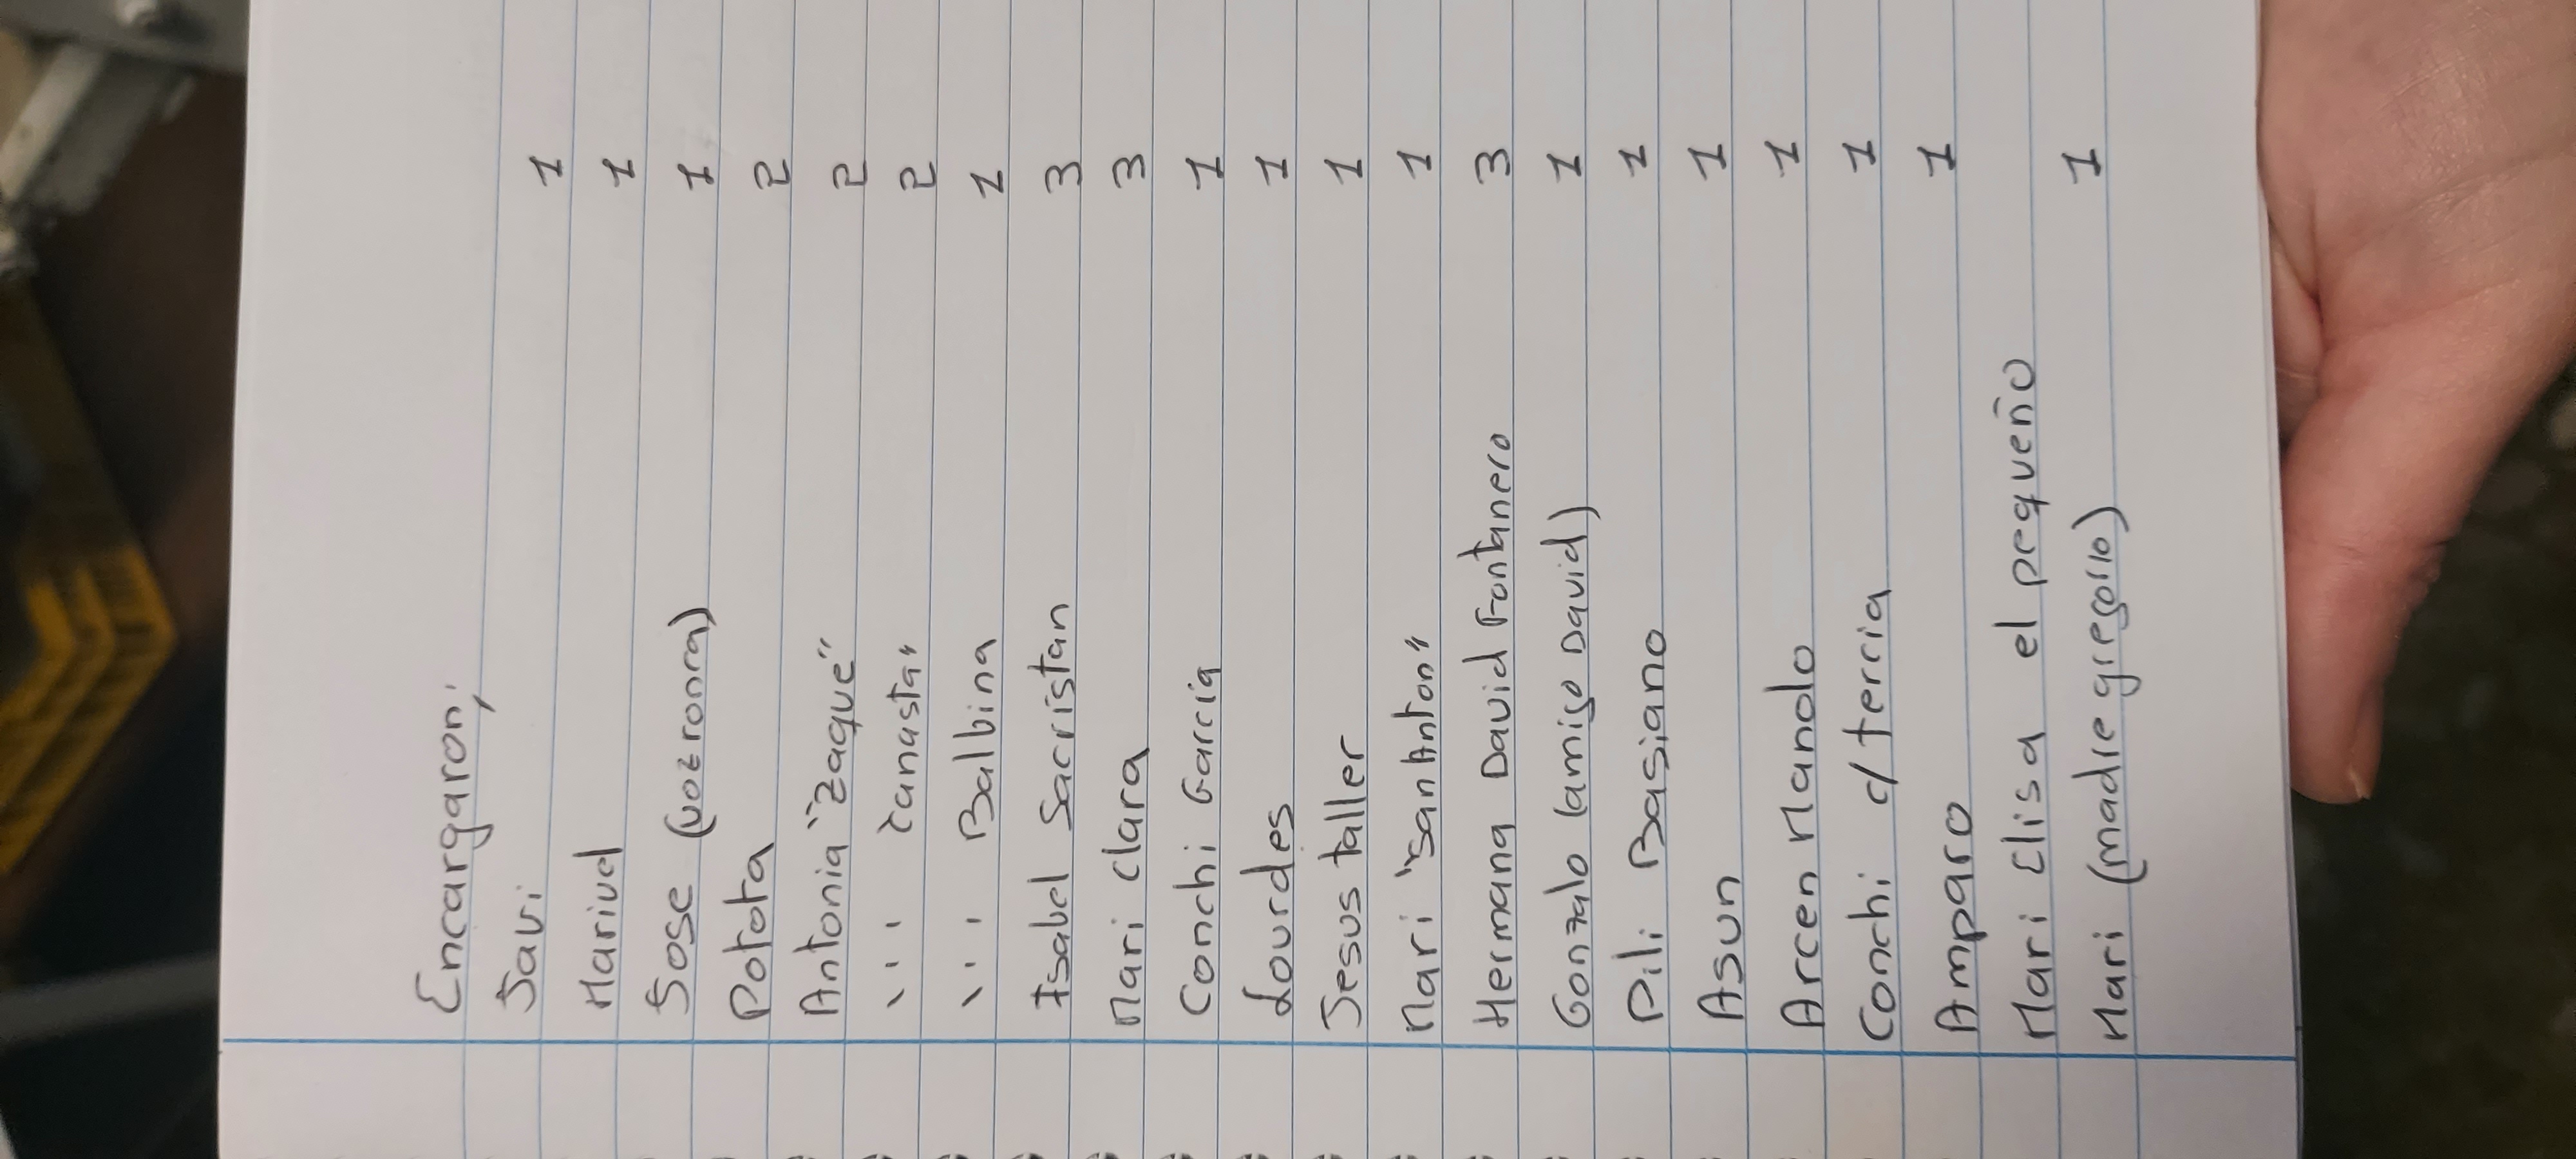 Encargaron;
Javi 1
Marivel 1
Jose (voz ronra) 1
Potota 2
Antonia "Zaqué" 2
" " " Canasta" 2
" " " Balbina 1
Isabel Sacristan 3
Mari Clara 3
Conchi Garcia 1
Lourdes 1
Jesus taller 1
Mari "SanAnton" 1
Hermana David Fontanero 3
Gonzalo (amigo David) 1
Pili Basiano 1
Asun 1
Arcen Manolo 1
Conchi c/ tercia 1
Amparo 1
Mari Elisa el pequeño
Mari (madre gregorio) 1